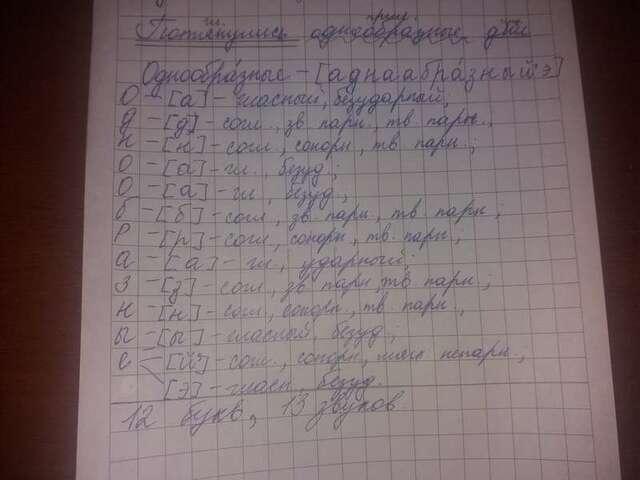 гл. прил.
Потянулись однообразные дни
Однообра́зные – [аднаабра́зный'э]
О – [а] – гласный, безударный;
д – [д] – согл., зв. парн., тв. парн.;
н – [н] – согл., сонорн., тв. парн.;
о – [а] – гл., безуд.;
о – [а] – гл., безуд.;
б – [б] – согл., зв. парн., тв. парн.;
р – [р] – согл., сонорн., тв. парн.;
а – [а] – гл., ударный;
з – [з] – согл., зв. парн., тв. парн.;
н – [н] – согл., сонорн., тв. парн.;
ы – [ы] – гласный, безуд.;
е – [й'] – согл., сонорн., мягк. непарн.;
[э] – гласн., безуд.
12 букв, 13 звуков